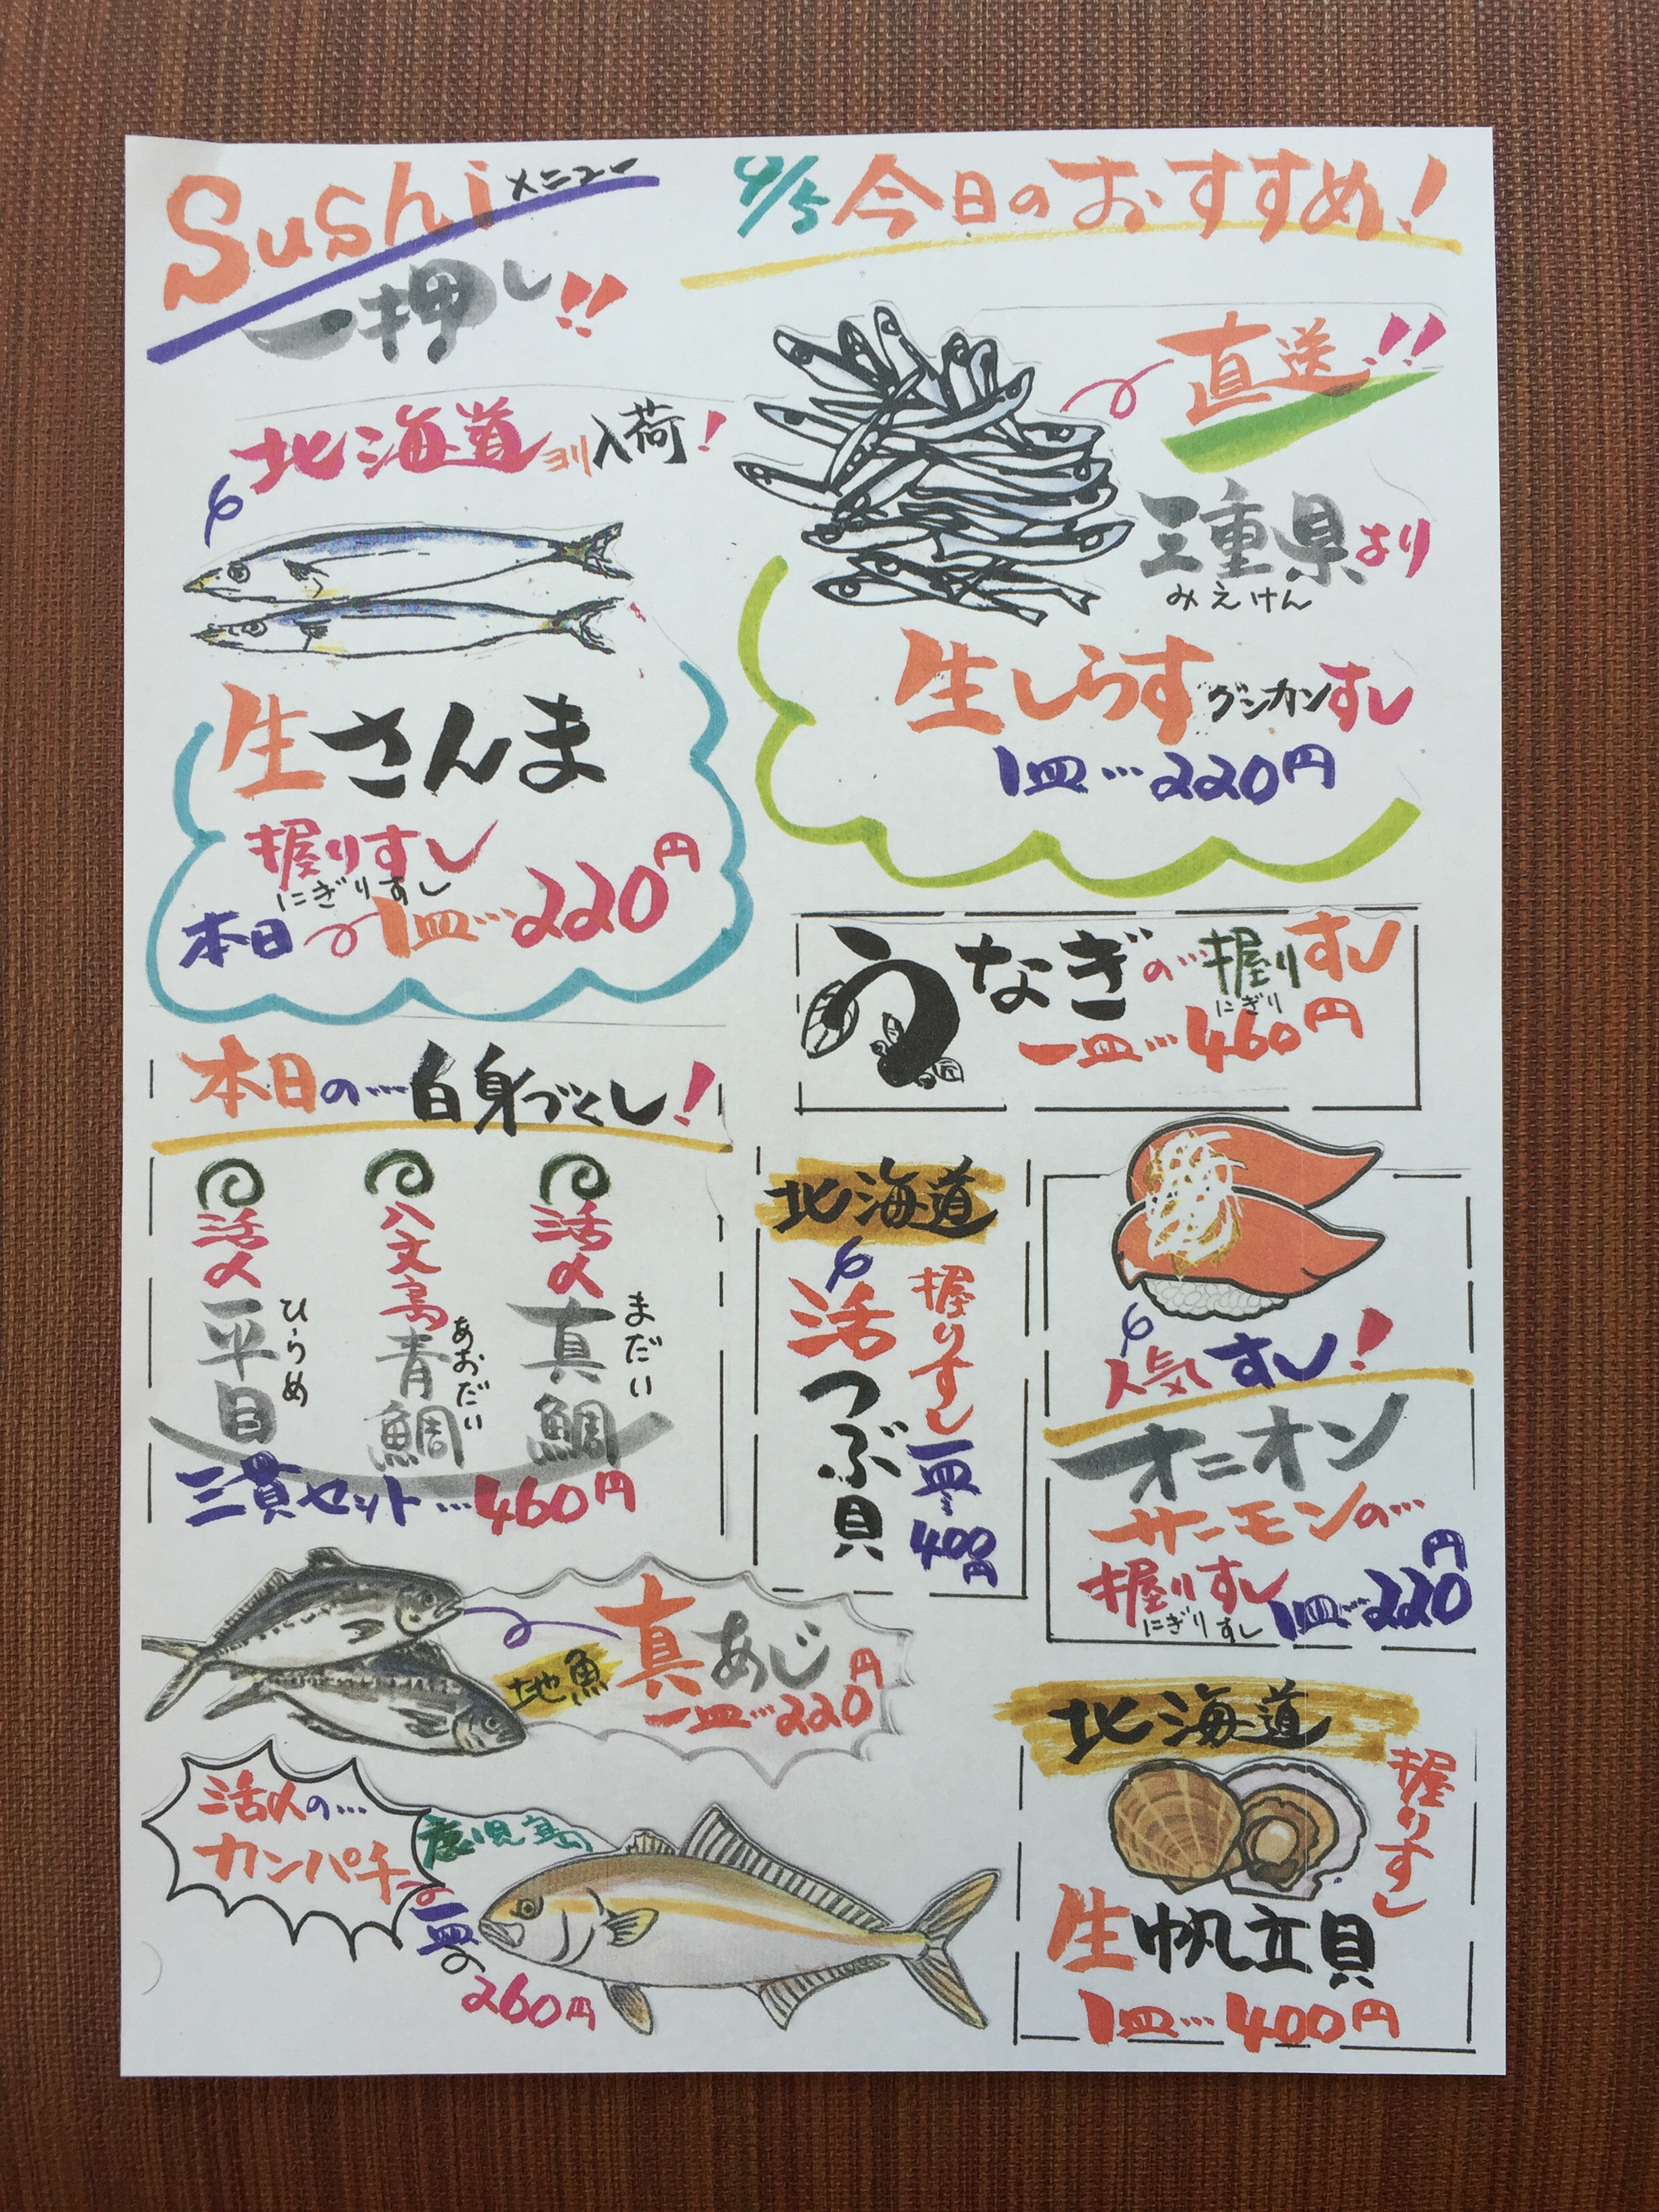 Sushiメニュー
一押し!!
9/5 今日のおすすめ!
北海道ヨリ入荷!
生さんま
握りすし
にぎりすし
本日 1皿…220円
直送!!
三重県より
みえけん
生しらすグンカンすし
1皿…220円
うなぎの…握りすし
にぎり
一皿…460円
本日の…白身づくし!
活〆
平目
ひらめ
八丈島
青鯛
あおだい
活〆
真鯛
まだい
三貫セット…460円
北海道
活つぶ貝
握りすし
一皿…400円
人気すし!
オニオン
サーモンの…
握りすし
にぎりすし
1皿…220円
地魚
真あじ
一皿…220円
活〆の…
カンパチ
鹿児島
一皿
260円
北海道
握りすし
生帆立貝
1皿…400円